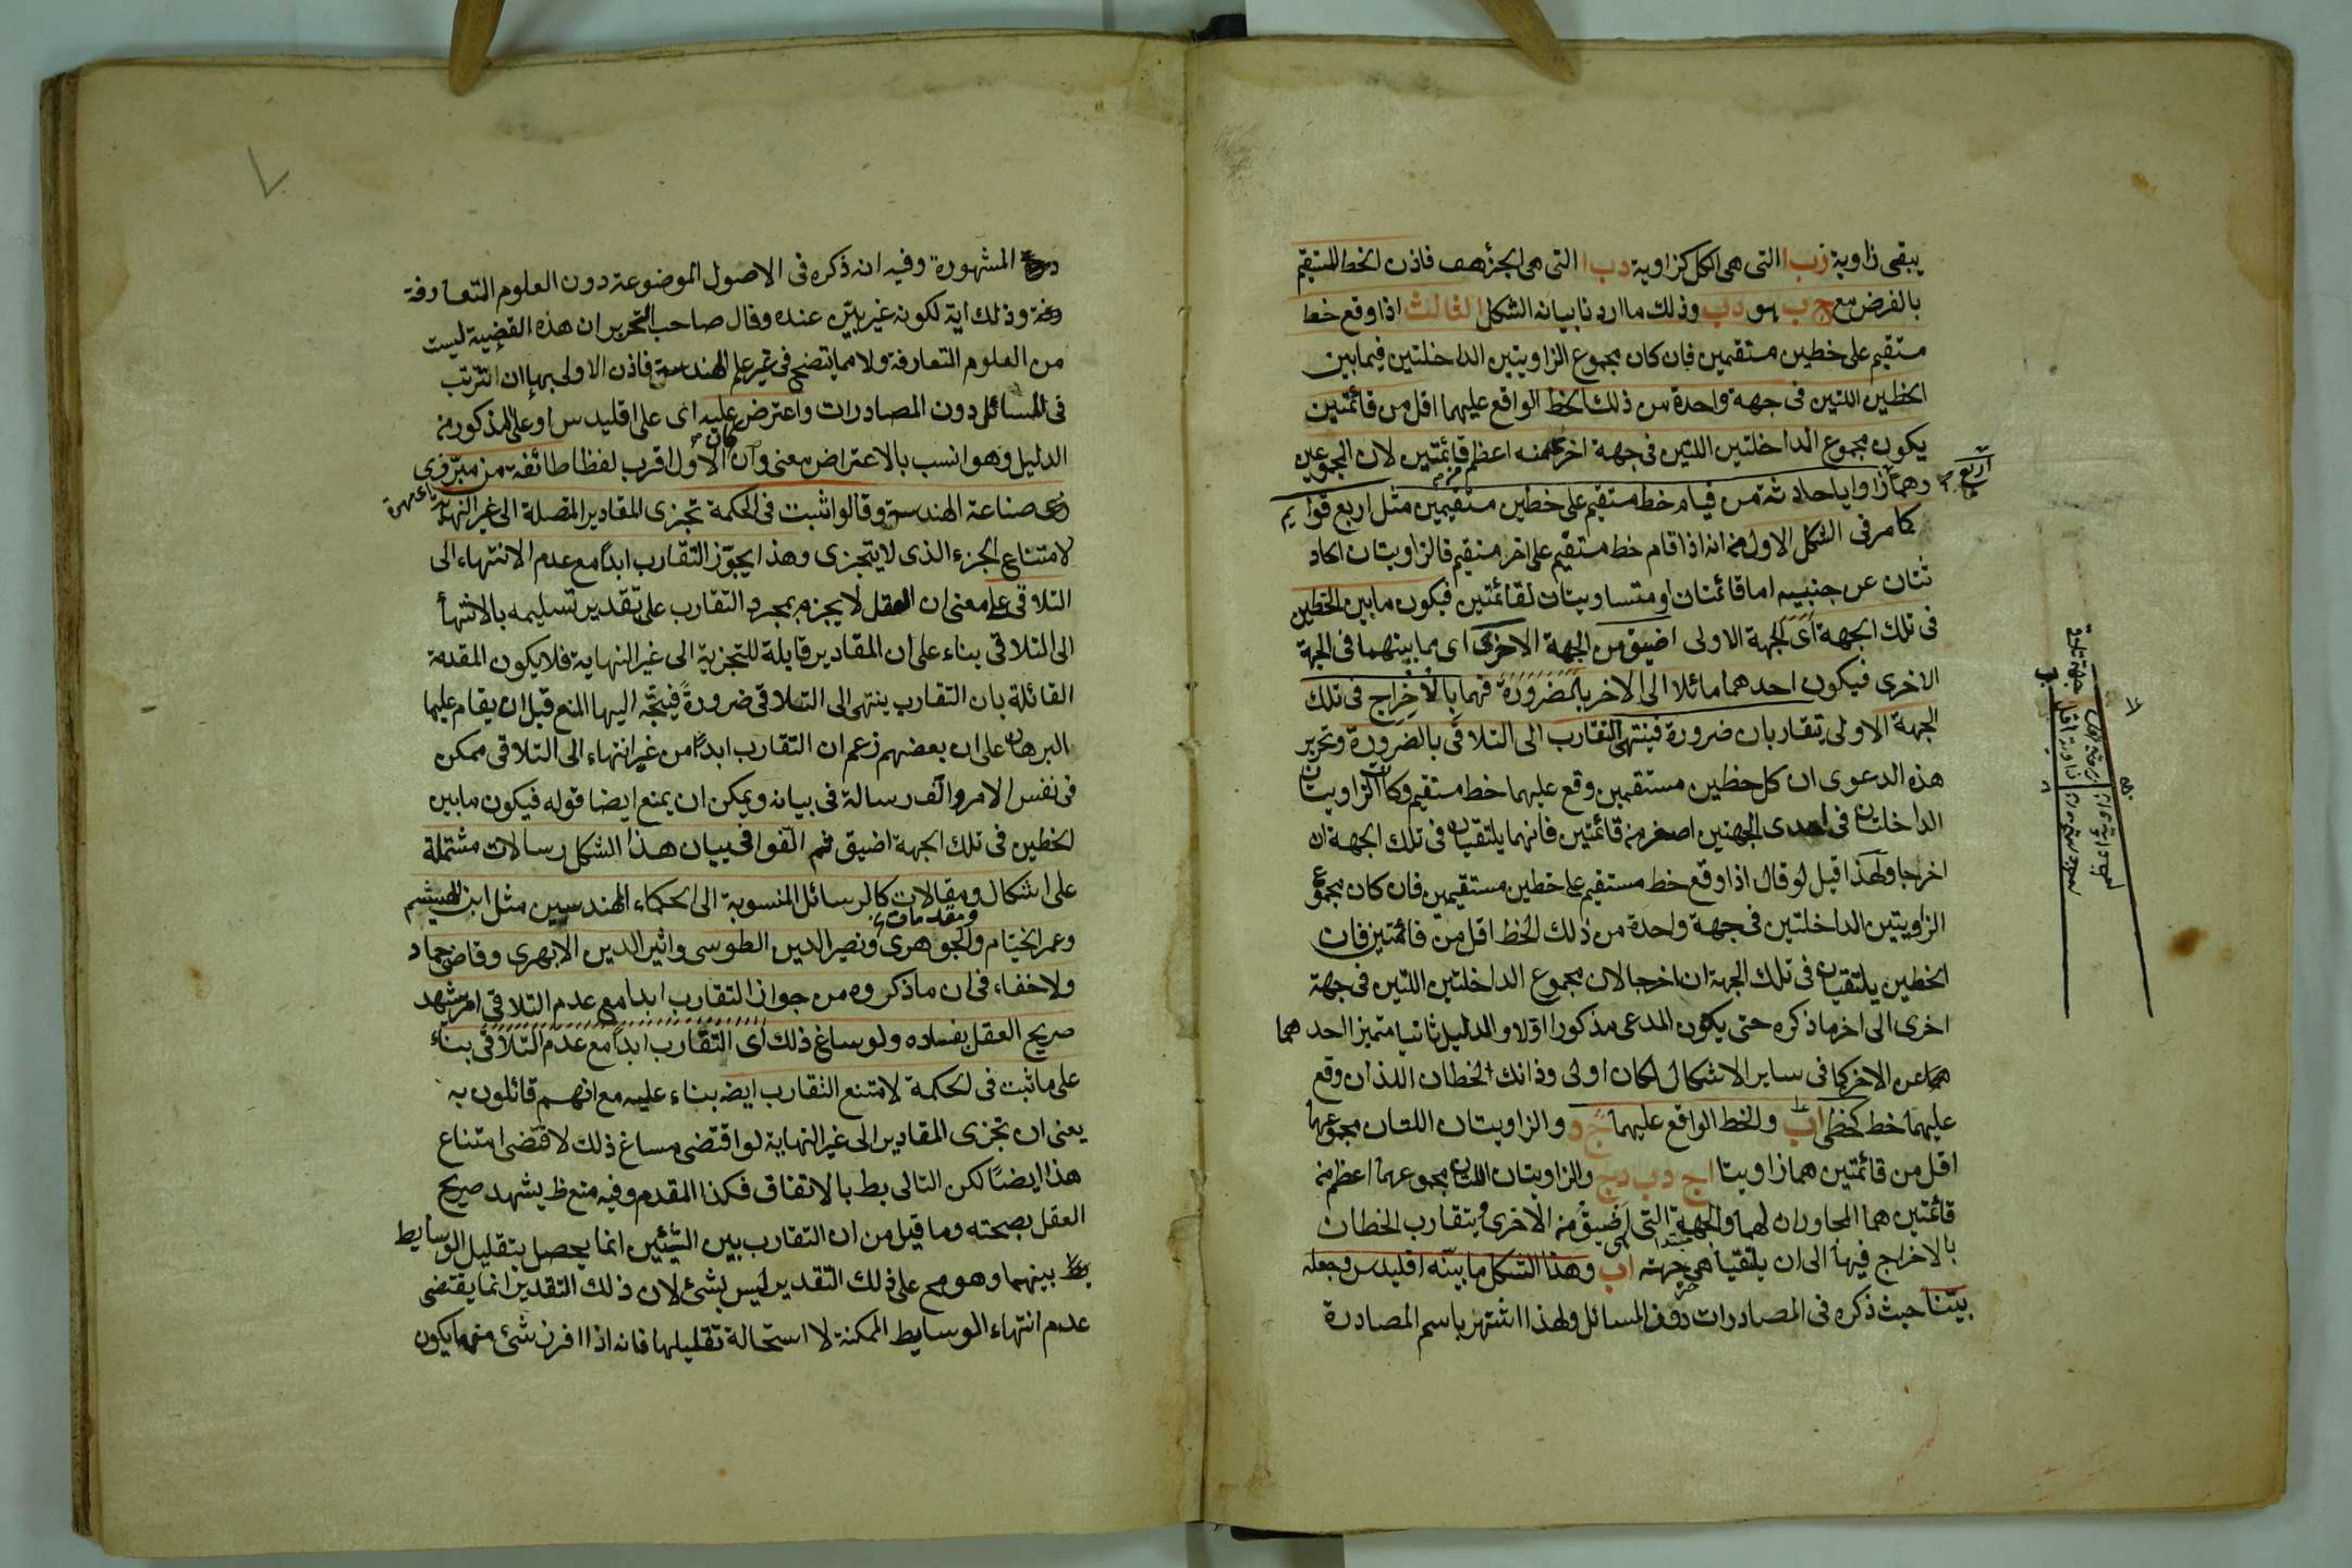 يبقى زاوية زب ا التى هى الكل كزاوية دب ا التى هى الجزء هف فاذن الخط المستقيم
بالفرض مع ج ب هو دب وذلك ما اردنا بيانه الشكل الثالث اذا وقع خط
مستقيم على خطين مستقيمين فان كان مجموع الزاويتين الداخلتين فيما بين
الخطين اللتين فى جهة واحدة من ذلك الخط الواقع عليهما اقل من قائمتين
يكون مجموع الداخلتين اللتين فى جهة اخرى منه اعظم من قائمتين لان المجموعين
وهما زوايا حادثة من قيام خط مستقيم على خطين مستقيمين مثل اربع قوايم
اربع
كما مر فى الشكل الاول من انه اذا قام خط مستقيم على اخر مستقيم فالزاويتان الحاد
ثتان عن جنبيه اما قائمتان او متساويتان لقائمتين فيكون ما بين الخطين
فى تلك الجهة اى الجهة الاولى اضيق من الجهة الاخرى اى مما بينهما فى الجهة
الاخرى فيكون احدهما مائلا الى الاخر بالضرورة فهما بالاخراج فى تلك
الجهة الاولى يتقاربان ضرورة فينتهى التقارب الى التلاقى بالضرورة وتحرير
هذه الدعوى ان كل خطين مستقيمين وقع عليهما خط مستقيم وكانت الزاويتان
الداخلتان فى احدى الجهتين اصغر من قائمتين فانهما يلتقيان فى تلك الجهة ان
اخرجا ولهذا قيل لو قال اذا وقع خط مستقيم على خطين مستقيمين فان كان مجموع
الزاويتين الداخلتين فى جهة واحدة من ذلك الخط اقل من قائمتين فان
الخطين يلتقيان فى تلك الجهة ان اخرجا لان مجموع الداخلتين اللتين فى جهة
اخرى الى اخر ما ذكره حتى يكون المدعى مذكورا اولا والدليل ثانيا متميزا احدهما
عن الاخر كما فى ساير الاشكال لكان اولى وذانك الخطان اللذان وقع
عليهما خط كخطى اب والخط الواقع عليهما ج د والزاويتان اللتان مجموعهما
اقل من قائمتين هما زاويتا اج د ب دج والزاويتان اللتان مجموعهما اعظم من
قائمتين هما المجاورتان لهما والجهة التى هى اضيق من الاخرى ويتقارب الخطان
بالاخراج فيها الى ان يلتقيا هى جهة اب وهذا الشكل ما بينه اقليدس وجعله
بيّنا حيث ذكره فى المصادرات دون المسائل ولهذا اشتهر باسم المصادرة
المشهورة وفيه انه ذكره فى الاصول الموضوعة دون العلوم المتعارفة
وذلك اية لكونه غير بيّن عنده وقال صاحب التحرير ان هذه القضية ليست
من العلوم المتعارفة ولا مما يتضح فى غير علم الهندسة فاذن الاولى بها ان تترتب
فى المسائل دون المصادرات واعترض عليه اى على اقليدس او على المذكور من
الدليل وهو انسب بالاعتراض معنى وان كان الاول اقرب لفظا طائفة من مبرزى
صناعة الهندسة وقالوا ثبت فى الحكمة تجزى المقادير المتصلة الى غير النهاية
لامتناع الجزء الذى لا يتجزى وهذا يجوّز التقارب ابدا مع عدم الانتهاء الى
التلاقى على معنى ان العقل لا يجزم بمجرد التقارب على تقدير تسليمه بالانتهاء
الى التلاقى بناء على ان المقادير قابلة للتجزية الى غير النهاية فلا يكون المقدمة
القائلة بان التقارب ينتهى الى التلاقى ضرورةً فيتّجه اليها المنع قبل ان يقام عليها
البرهان على ان بعضهم زعم ان التقارب ابداً من غير انتهاء الى التلاقى ممكن
فى نفس الامر والّف رسالة فى بيانه ويمكن ان يمنع ايضا قوله فيكون ما بين
الخطين فى تلك الجهة اضيق ثم الّفوا فى بيان هذا الشكل رسالات مشتملة
على اشكال ومقالات كالرسائل المنسوبة الى الحكماء المهندسين مثل ابن الهيثم
ومقدمات
وعمر الخيام والجوهرى ونصير الدين الطوسى واثير الدين الابهرى وقاضى حماد
ولا خفاء فى ان ما ذكروه من جواز التقارب ابدا مع عدم التلاقى امر يشهد
صريح العقل بفساده ولو ساغ ذلك اى التقارب ابداً مع عدم التلاقى بناء
على ما ثبت فى الحكمة لامتنع التقارب ايضه بناء عليه مع انهم قائلون به
يعنى ان تجزى المقادير الى غير النهاية لو اقتضى مساغ ذلك لاقتضى امتناع
هذا ايضاً لكن التالى بط بالاتفاق فكذا المقدم وفيه منع ظ يشهد صريح
العقل بصحته وما قيل من ان التقارب بين الشيئين انما يحصل بتقليل الوسايط
بينهما وهو مح على ذلك التقدير ليس بشئ لان ذلك التقدير انما يقتضى
عدم انتهاء الوسايط الممكنة لا استحالة تقليلها فانه اذا افرز شئ منها يكون